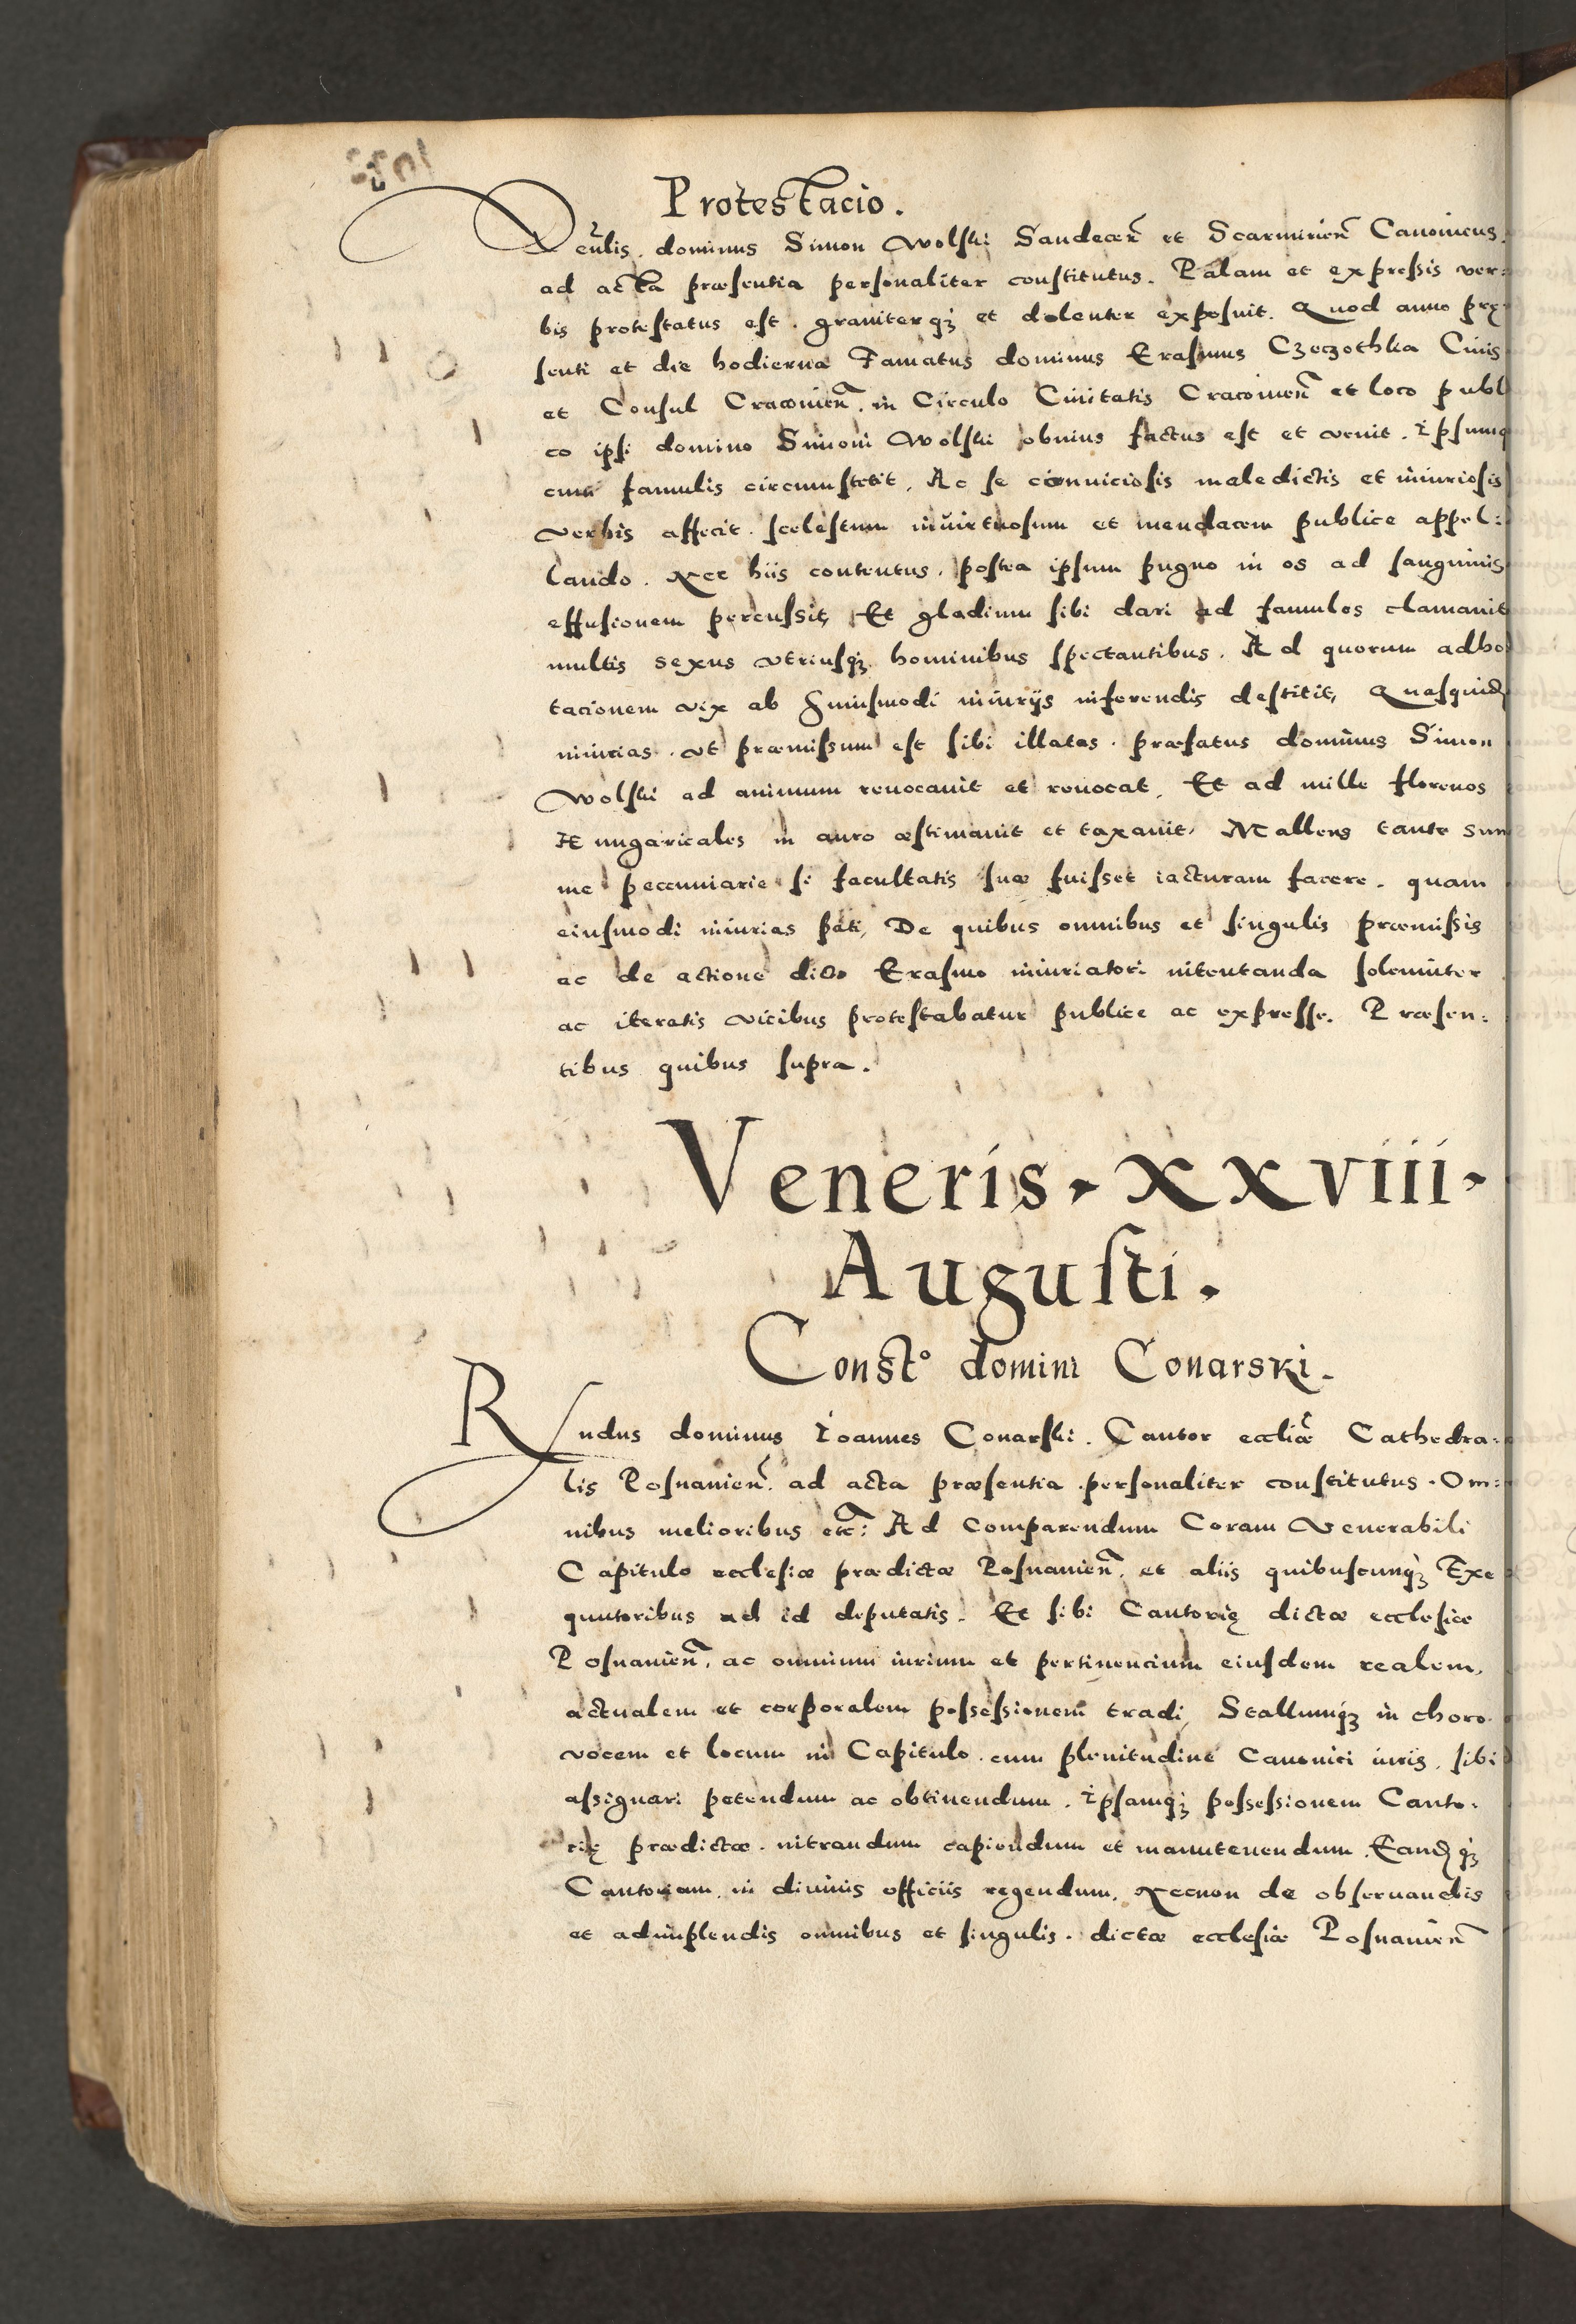 Protestacio.
dominus Simon Wolski Sandecen̄ et Scarmirien̄ Canonicus
ad acta præsentia personaliter constitutus. Palam et expressis ver:
bis protestatus est. grauiterqꝫ et dolenter exposuit. Quod anno prę
senti et die hodierna Famatus dominus Erasmus Czeczothka Ciuis
et Consul Cracouien̄. in Circulo Ciuitatis Cracouien̄ et loco publ
co ipsi domino Simoni Wolski obuius factus est et venit. Ipsumq
cum famulis circumstetit. Ac se conuiciosis maledictis et iniuriosis
verbis affecit. scelestum inuirtuosum et mendacem publice appel:
lando. Nec hiis contentus. postea ipsum pugno in os ad sanguinis
effusionem percussit, Et gladium sibi dari ad famulos clamauit
multis sexus vtriusqꝫ hominibus spectantibus. Ad quorum adho
tacionem vix ab huiusmodi iniurijs inferendis destitit, Quasquid
iniurias. vt præmissum est sibi illatas. præfatus dominus Simon
Wolski ad animum reuocauit et reuocat. Et ad mille florenos
Hungaricales in auro æstimauit et taxauit, Mallens tante sum
me peccuniarie si facultatis suæ fuisset iacturam facere. quam
eiusmodi iniurias pati, De quibus omnibus et singulis præmissis
ac de actione dicto Erasmo iniuriatori intentanda solenniter
ac iteratis vicibus protestabatur publice ac expresse. Præsen:
tibus quibus supra.
Veneris. xxviii.
Augusti.
Const° domini Conarski.
Rndus dominus Ioannes Conarski. Cantor eccliæ Cathedra:
lis Posnanien̄. ad acta præsentia personaliter constitutus. Om:
nibus melioribus etc: Ad Comparendum Coram Venerabili
Capitulo ecclesiæ prædictæ Posnanien̄. et aliis quibuscunqꝫ Exe
quutoribus ad id deputatis. Et sibi Cantorię dictæ ecclesiæ
Posnanien̄. ac omnium iurium et pertinencium eiusdem realem,
actualem et corporalem possessionem tradi, Stallumqꝫ in choro
vocem et locum in Capitulo. cum plenitudine Canonici iuris. sibi
assignari petendum ac obtinendum. Ipsamqꝫ possessionem Canto.
rię prædictæ. intrandum capiendum et manutenendum. Eandqꝫ
Cantoriam. in diuinis officiis regendum. Necnon de obseruandis
et adimplendis omnibus et singulis. dictæ ecclesiæ Posnanien̄